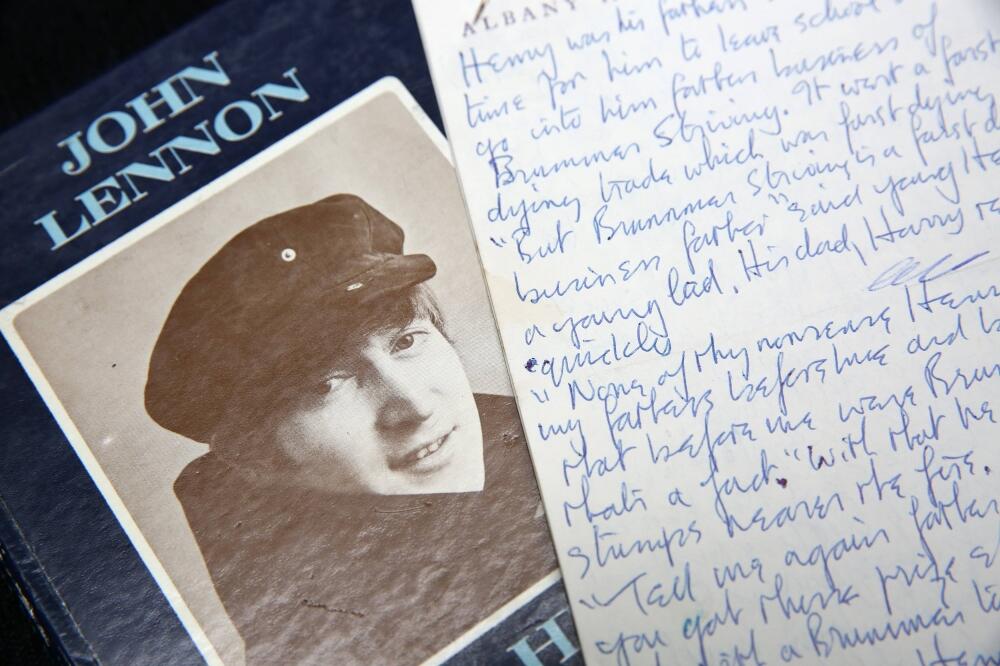 JOHN
LENNON
H
ALBANY
Henry was his fathers
time for him to leave school
go into him father buseness of
Brummer Striving. It wart a farst
dying trade which was farst dying
"But Brummer Striving is a farst d
business farther" said young He
a young lad. His dad, Harry re
quickly
"None of thy nonsense Henr
my fathers before me and b
that before me were Brum
thats a fact." With that he
stumps nearer the fire.
"Tell me again father
you got prize
a Brummer